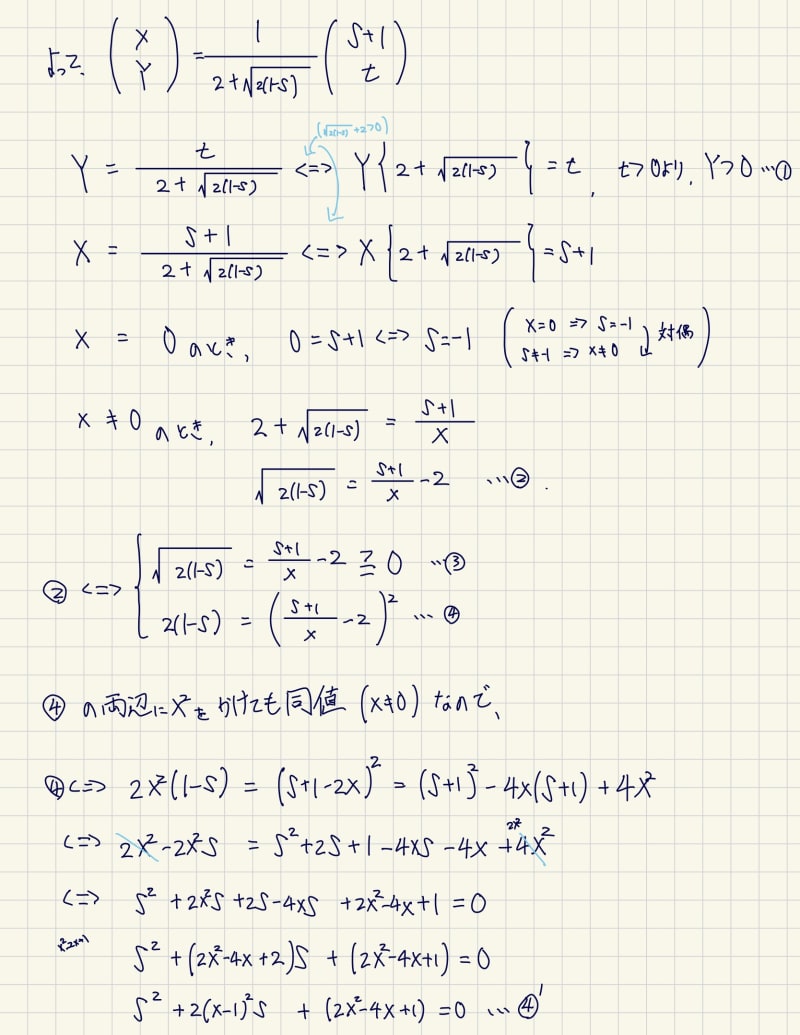 よって、(X Y) = 1/(2+√2(1-S)) (S+1 t)
(√2(1-S)+2>0)
Y = t/(2+√2(1-S)) <=> Y{2+√2(1-S)} = t, t>0より, Y>0 …①
X = (S+1)/(2+√2(1-S)) <=> X{2+√2(1-S)} = S+1
X = 0 のとき, 0=S+1 <=> S=-1 (X=0 => S=-1 S≠-1 => X≠0 対偶)
X ≠ 0 のとき, 2+√2(1-S) = (S+1)/X
√2(1-S) = (S+1)/X -2 …② .
② <=> { √2(1-S) = (S+1)/X -2 ≧ 0 …③
2(1-S) = ((S+1)/X -2)² …④
④ の両辺にX²をかけても同値 (X≠0) なので、
④<=> 2X²(1-S) = (S+1-2X)² = (S+1)² - 4X(S+1) + 4X²
<=> 2X²-2X²S = S²+2S+1-4XS-4X+4X² 2X²
<=> S²+2X²S+2S-4XS+2X²-4X+1=0
S²+(2X²-4X+2)S+(2X²-4X+1)=0
S²+2(X-1)²S+(2X²-4X+1)=0 …④'